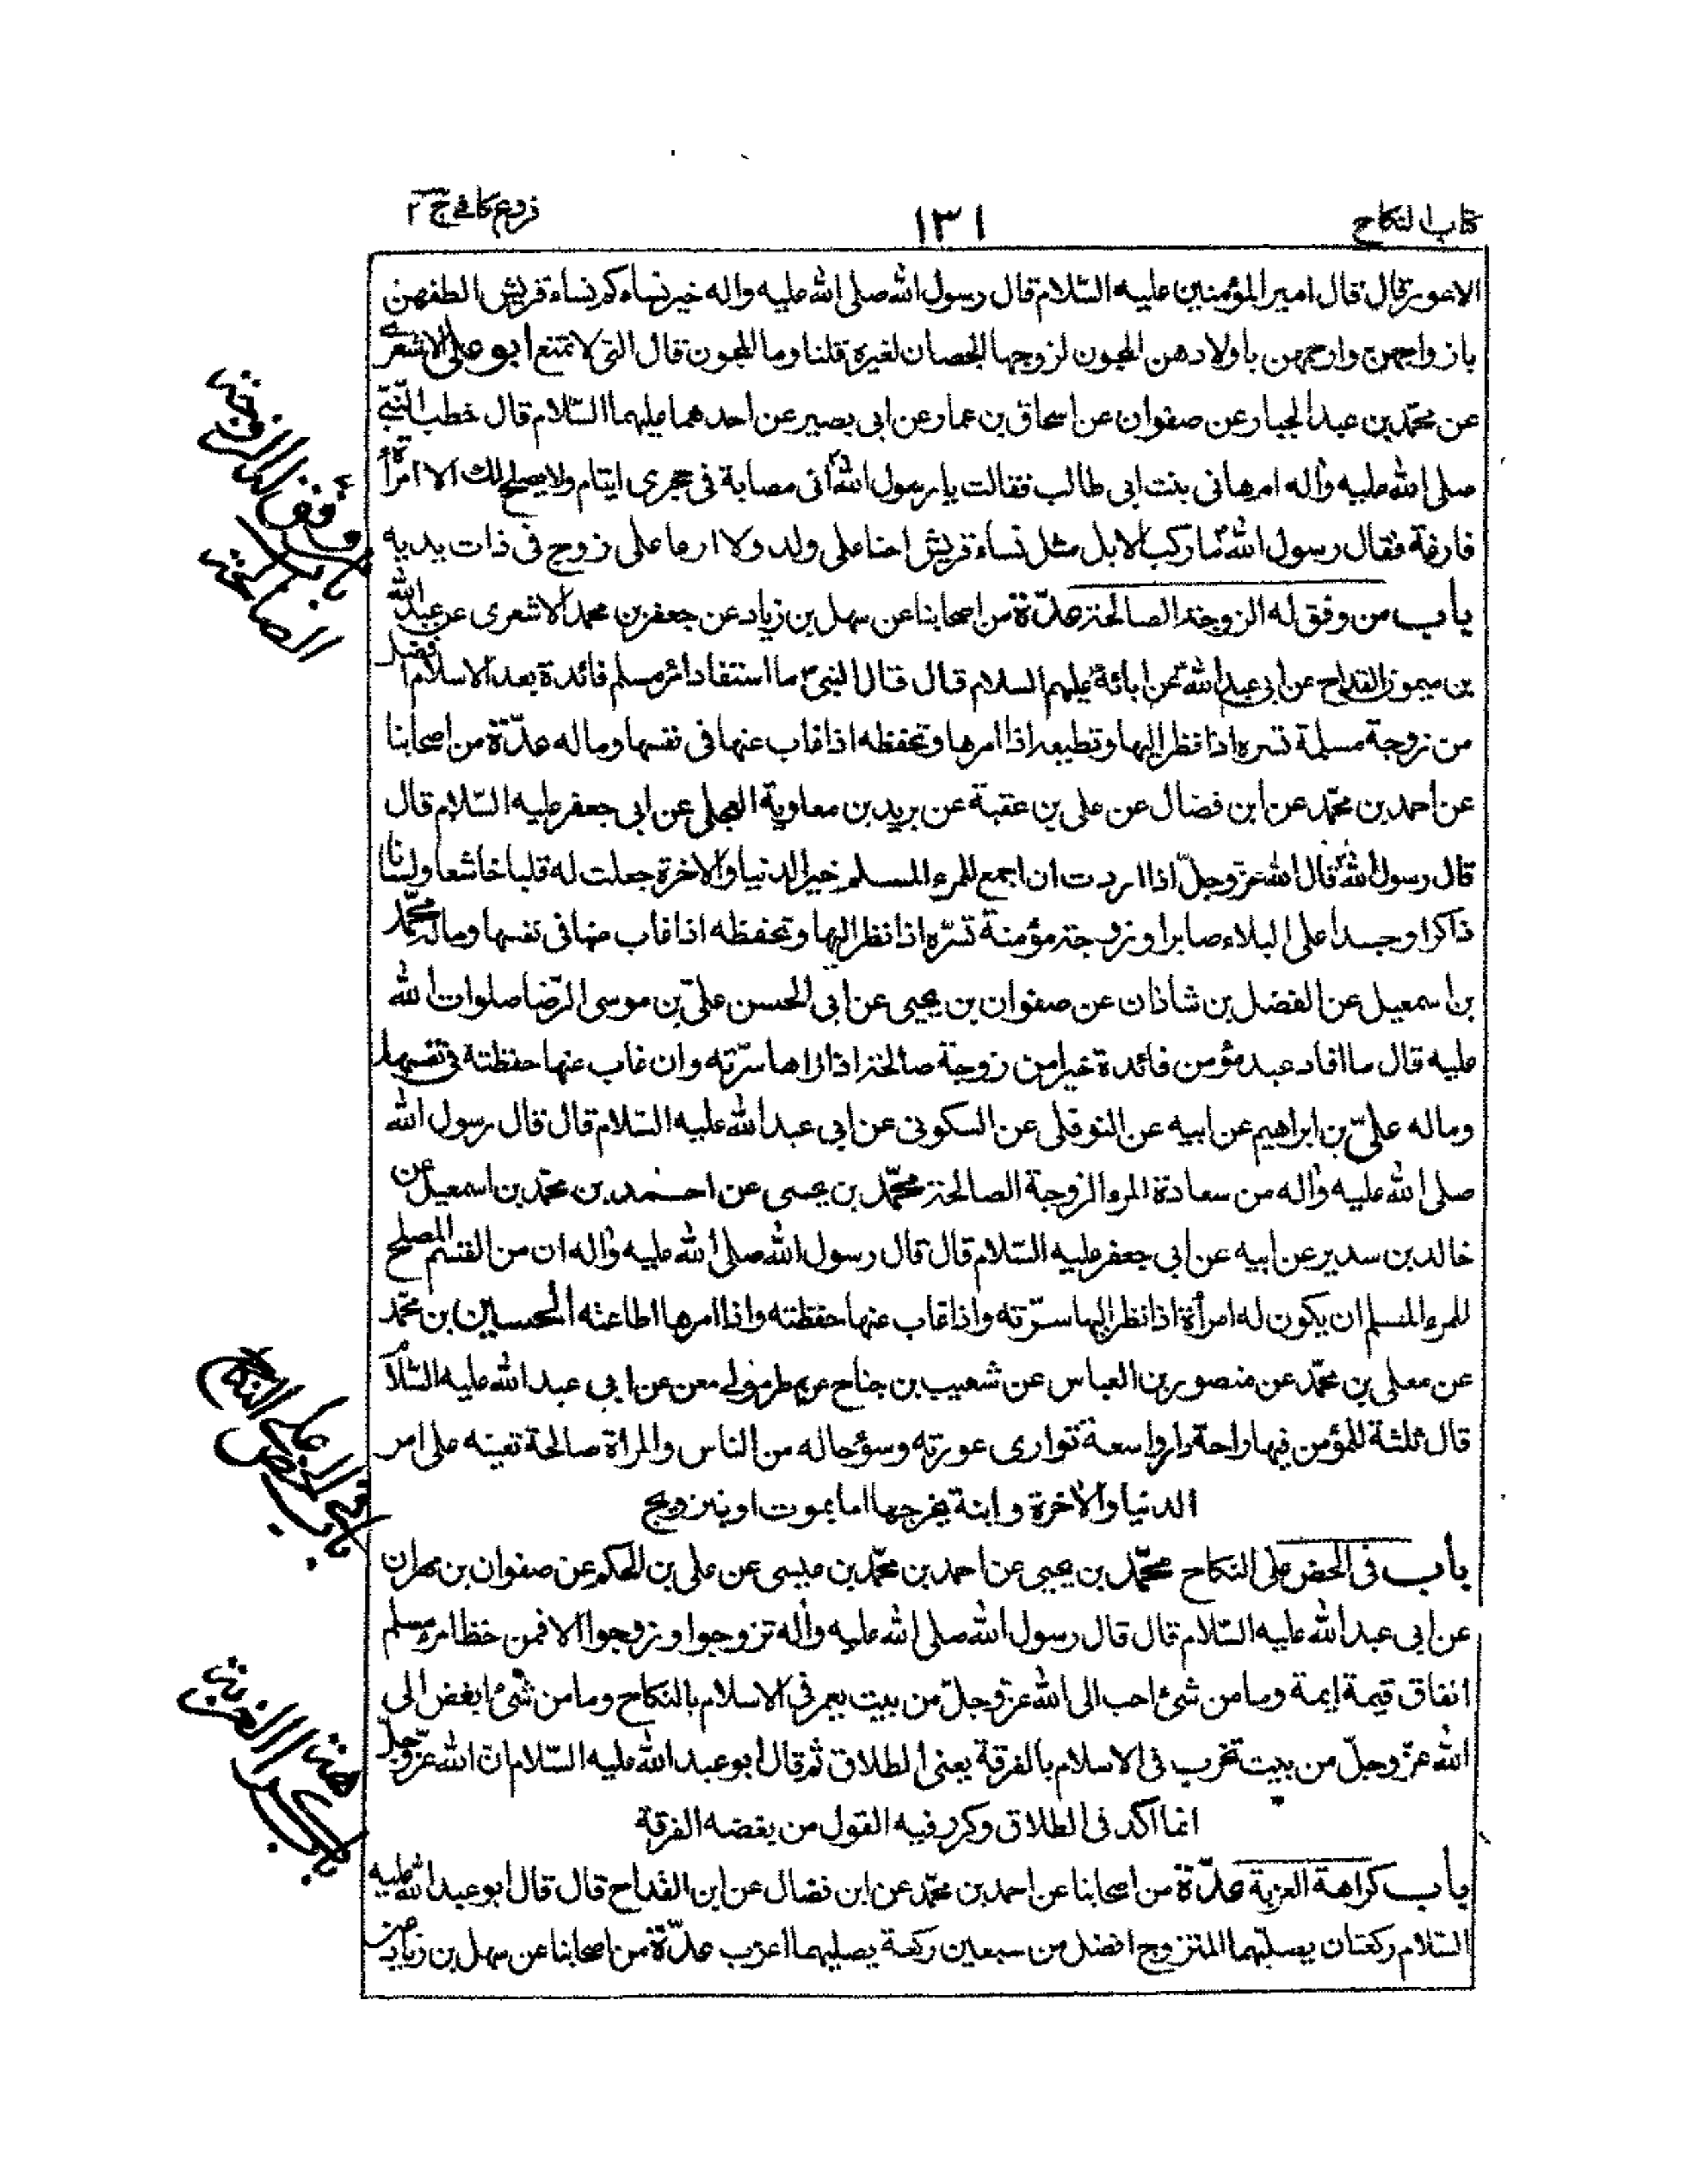 كتاب النكاح
١٣١
فروع كافي ج ٢
الاعور قال قال امير المؤمنين عليه السّلام قال رسول الله صلى الله عليه واله خير نساءكم نساء قريش الطفهن
بازواجهن وارحمهن باولادهن المجون لزوجها الحصان لغيره قلنا وما المجون قال التى لا تمتنع ابو على الاشعرى
عن محمّد بن عبد الجبار عن صفوان عن اسحاق بن عمار عن ابى بصير عن احدهما عليهما السّلام قال خطب النّبىّ
صلى الله عليه وآله ام هانى بنت ابى طالب فقالت يا رسول الله انى مصابة فى حجرى ايتام ولا يصلح لك الا امرأة
فارغة فقال رسول الله ما ركب الابل مثل نساء قريش احنا على ولد ولا ارعا على زوج فى ذات يديه
باب من وفق له الزوجة الصالحة عدّة من اصحابنا عن سهل بن زياد عن جعفر بن محمد الاشعرى عن عبد الله
بن ميمون القداح عن ابى عبد الله عن ابائه عليهم السلام قال قال النبىّ ما استفاد امرء مسلم فائدة بعد الاسلام افضل
من زوجة مسلمة تسره اذا نظر اليها وتطيعه اذا امرها وتحفظه اذا غاب عنها فى نفسها وماله عدّة من اصحابنا
عن احمد بن محمّد عن ابن فضال عن على بن عقبة عن بريد بن معاوية العجلى عن ابى جعفر عليه السّلام قال
قال رسول الله قال الله عز وجلّ اذا اردت ان اجمع للمرء المسلم خير الدنيا والاخرة جعلت له قلبا خاشعا ولسانا
ذاكرا وجسدا على البلاء صابرا وزوجة مؤمنة تسّره اذا نظر اليها وتحفظه اذا غاب عنها فى نفسها وماله محمّد
بن اسمعيل عن الفضل بن شاذان عن صفوان بن يحيى عن ابى الحسن علىّ بن موسى الرّضا صلوات الله
عليه قال ما افاد عبد مؤمن فائدة خيرا من زوجة صالحة اذا راها سرّته وان غاب عنها حفظته فى نفسها
وماله علىّ بن ابراهيم عن ابيه عن النوفلى عن السكونى عن ابى عبد الله عليه السّلام قال قال رسول الله
صلى الله عليه وآله من سعادة المرء الزوجة الصالحة محمّد بن يحيى عن احمد بن محمّد بن اسمعيل عن
خالد بن سدير عن ابيه عن ابى جعفر عليه السّلام قال قال رسول الله صلى الله عليه وآله ان من القسم المصلح
للمرء المسلم ان يكون له امرأة اذا نظر اليها سرّته واذا غاب عنها حفظته واذا امرها اطاعته الحسين بن محمّد
عن معلى بن محمّد عن منصور بن العباس عن شعيب بن جناح عن مطر مولى معن عن ابى عبد الله عليه السّلام
قال ثلثة للمؤمن فيها راحة دار واسعة توارى عورته وسوء حاله من الناس والمرأة صالحة تعينه على امر
الدنيا والاخرة وابنة يخرجها اما بموت او بتزويج
باب فى الحض على النكاح محمّد بن يحيى عن احمد بن محمّد بن عيسى عن على بن الحكم عن صفوان بن مهران
عن ابى عبد الله عليه السّلام قال قال رسول الله صلى الله عليه وآله تزوجوا وزوجوا الا فمن حظ امرء مسلم
انفاق قيمة ايمة وما من شئ احب الى الله عز وجلّ من بيت يعمر فى الاسلام بالنكاح وما من شئ ابغض الى
الله عزّ وجلّ من بيت تخرب فى الاسلام بالفرقة يعنى الطلاق ثم قال ابو عبد الله عليه السّلام انّ الله عزّ وجلّ
انما اكد فى الطلاق وكرر فيه القول من بغضه الفرقة
باب كراهة العزبة عدّة من اصحابنا عن احمد بن محمّد عن ابن فضال عن ابن القداح قال قال ابو عبد الله عليه
السّلام ركعتان يصلّيهما المتزوج افضل من سبعين ركعة يصليهما اعزب عدّة من اصحابنا عن سهل بن زياد عن
باب من وفق له الزوجة
الصالحة
باب فى الحض على النكاح
باب كراهة العزبة